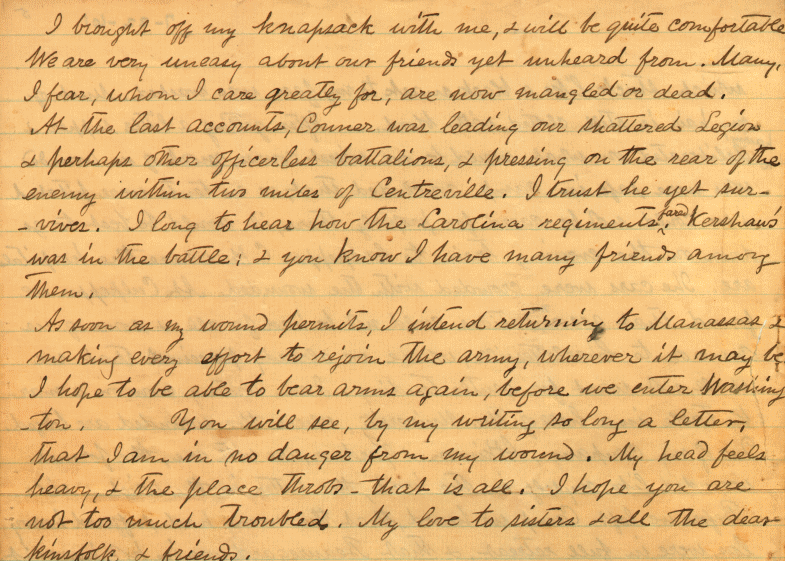 I brought off my knapsack with me, & will be quite comfortable
We are very uneasy about our friends yet unheard from. Many,
I fear, whom I care greatly for, are now mangled or dead.
At the last accounts, Conner was leading our shattered Legion
& perhaps other officerless battalions, & pressing on the rear of the
enemy within two miles of Centreville. I trust he yet sur-
-vives. I long to hear how the Carolina regiments fared, Kershaw's
was in the battle; & you know I have many friends among
them.
As soon as my wound permits, I intend returning to Manassas &
making every effort to rejoin the army, wherever it may be
I hope to be able to bear arms again, before we enter Washing
-ton. You will see, by my writing so long a letter,
that I am in no danger from my wound. My head feels
heavy, & the place throbs - that is all. I hope you are
not too much troubled. My love to sisters & all the dear
kinsfolk & friends.